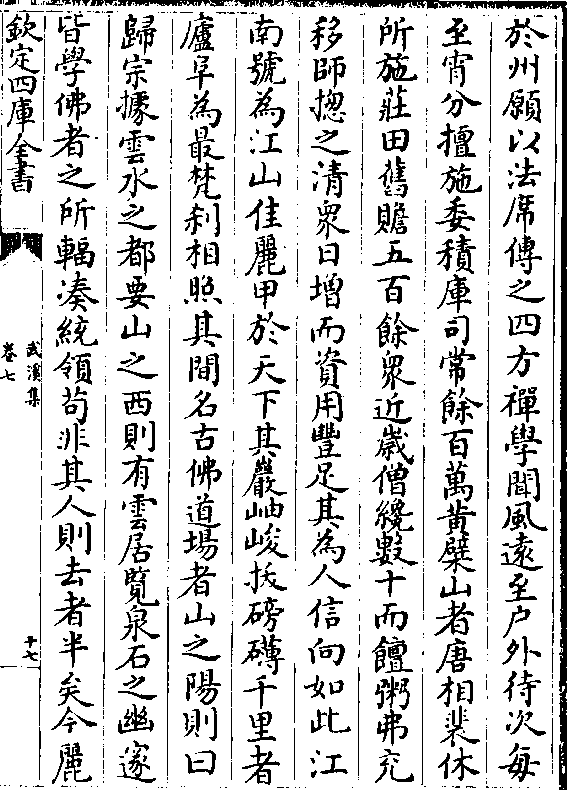 於州願以法席傳之四方禪學聞風遠至户外待次每
至宵分擅施委積庫司常餘百萬黄檗山者唐相裴休
所施莊田舊贍五百餘衆近歲僧纔數十而饘粥弗充
移師揔之清衆日增而資用豐足其為人信向如此江
南號為江山佳麗甲於天下其巖岫峻拔磅礴千里者
廬阜為最梵刹相照其間名古佛道場者山之陽則曰
歸宗據雲水之都要山之西則有雲居覽泉石之幽邃
皆學佛者之所輻凑統領苟非其人則去者半矣今麗
欽定四庫全書
武溪集
卷七
十七